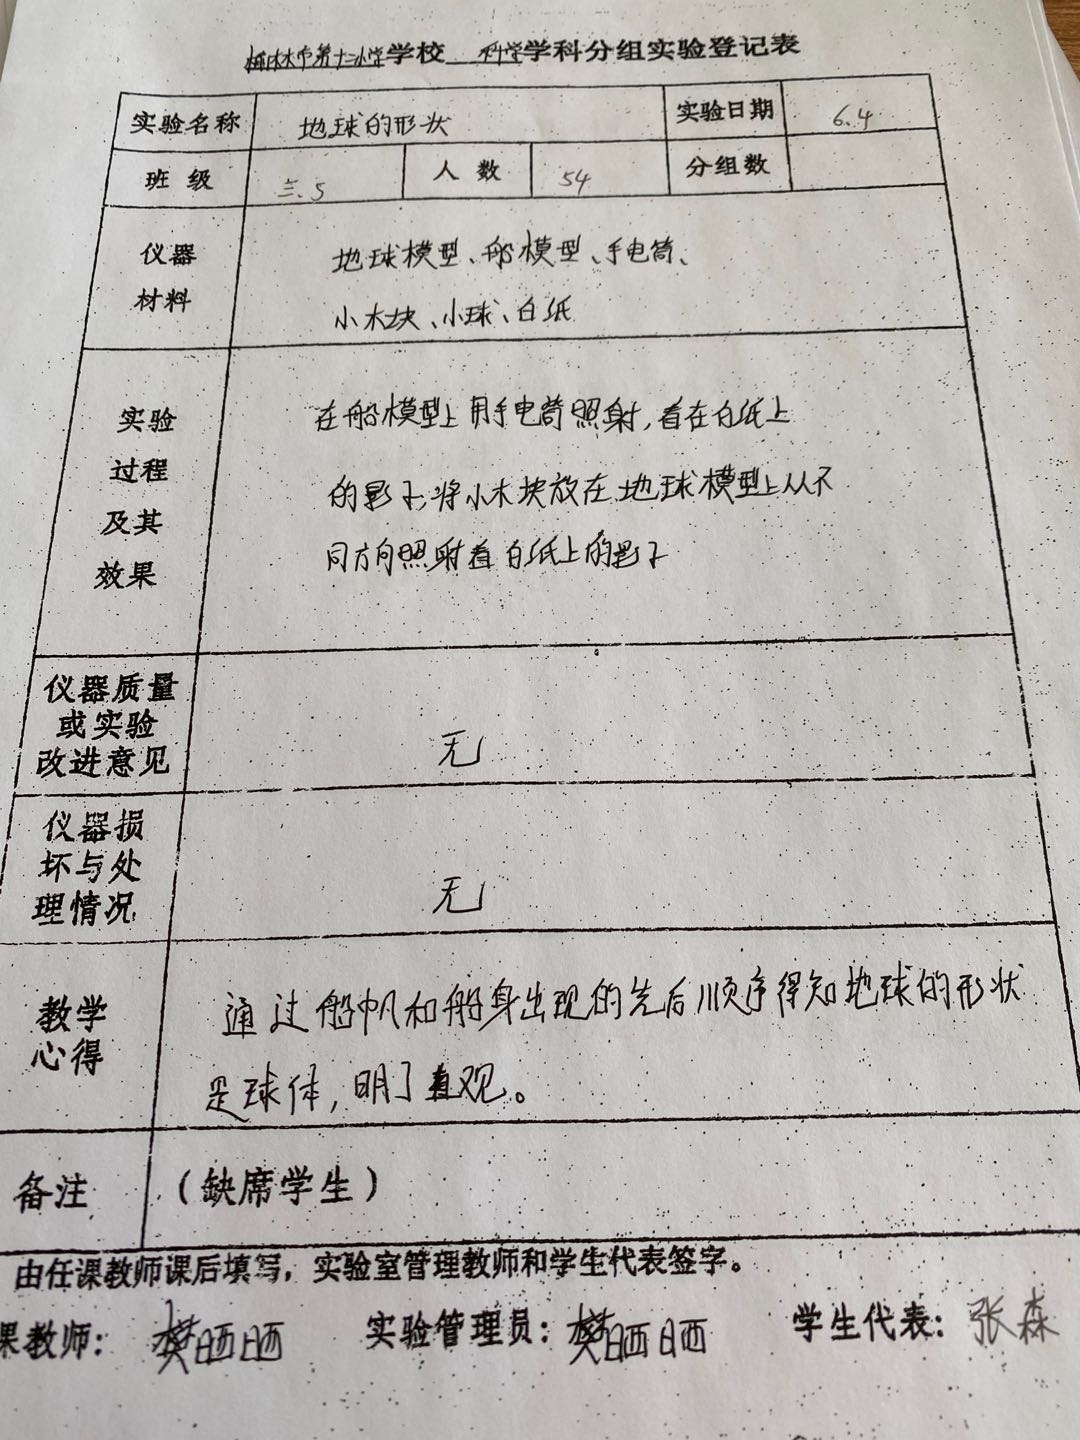 榆林市第十二小学学校 科学学科分组实验登记表
实验名称 地球的形状 实验日期 6.4
班级 三.5 人数 54 分组数
仪器材料 地球模型、船模型、手电筒、
小木块、小球、白纸
实验过程及其效果 在船模型上用手电筒照射,看在白纸上
的影子,将小木块放在地球模型上从不
同方向照射看白纸上的影子
仪器质量或实验改进意见 无
仪器损坏与处理情况 无
教学心得 通过船帆和船身出现的先后顺序得知地球的形状
是球体,明了直观。
备注 (缺席学生)
由任课教师课后填写,实验室管理教师和学生代表签字。
课教师: 樊晒晒 实验管理员: 樊晒晒 学生代表: 张森